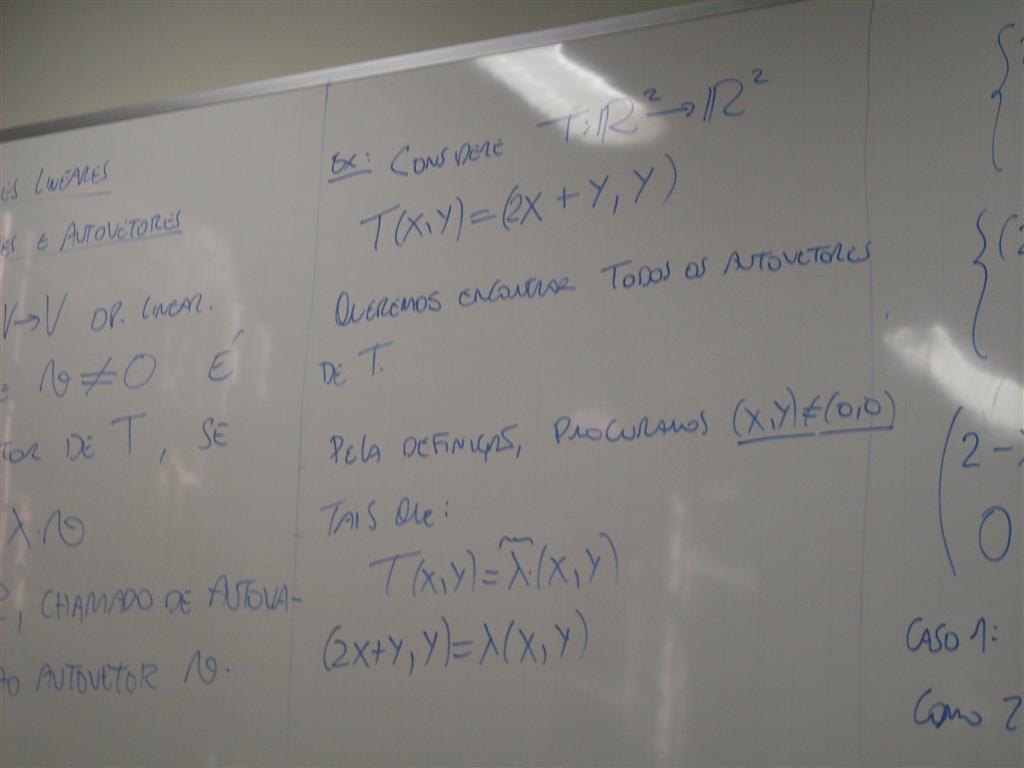 ES LINEARES
ES E AUTOVETORES
V→V OP. LINEAR.
v≠0 É
TOR DE T, SE
λ.v
, CHAMADO DE AUTOVA-
AO AUTOVETOR v.
EX: CONSIDERE T:ℝ²→ℝ²
T(X,Y)=(2X+Y,Y)
QUEREMOS ENCONTRAR TODOS OS AUTOVETORES
DE T.
PELA DEFINIÇÃO, PROCURAMOS (X,Y)≠(0,0)
TAIS QUE:
T(X,Y)=λ.(X,Y)
(2X+Y,Y)=λ(X,Y)
{
{(2
(2-λ
0
CASO 1:
COMO 2